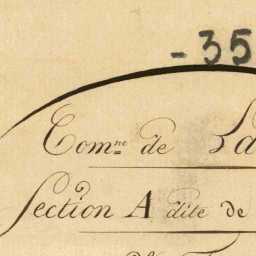 - 35
Com.ne de
Section A dite de